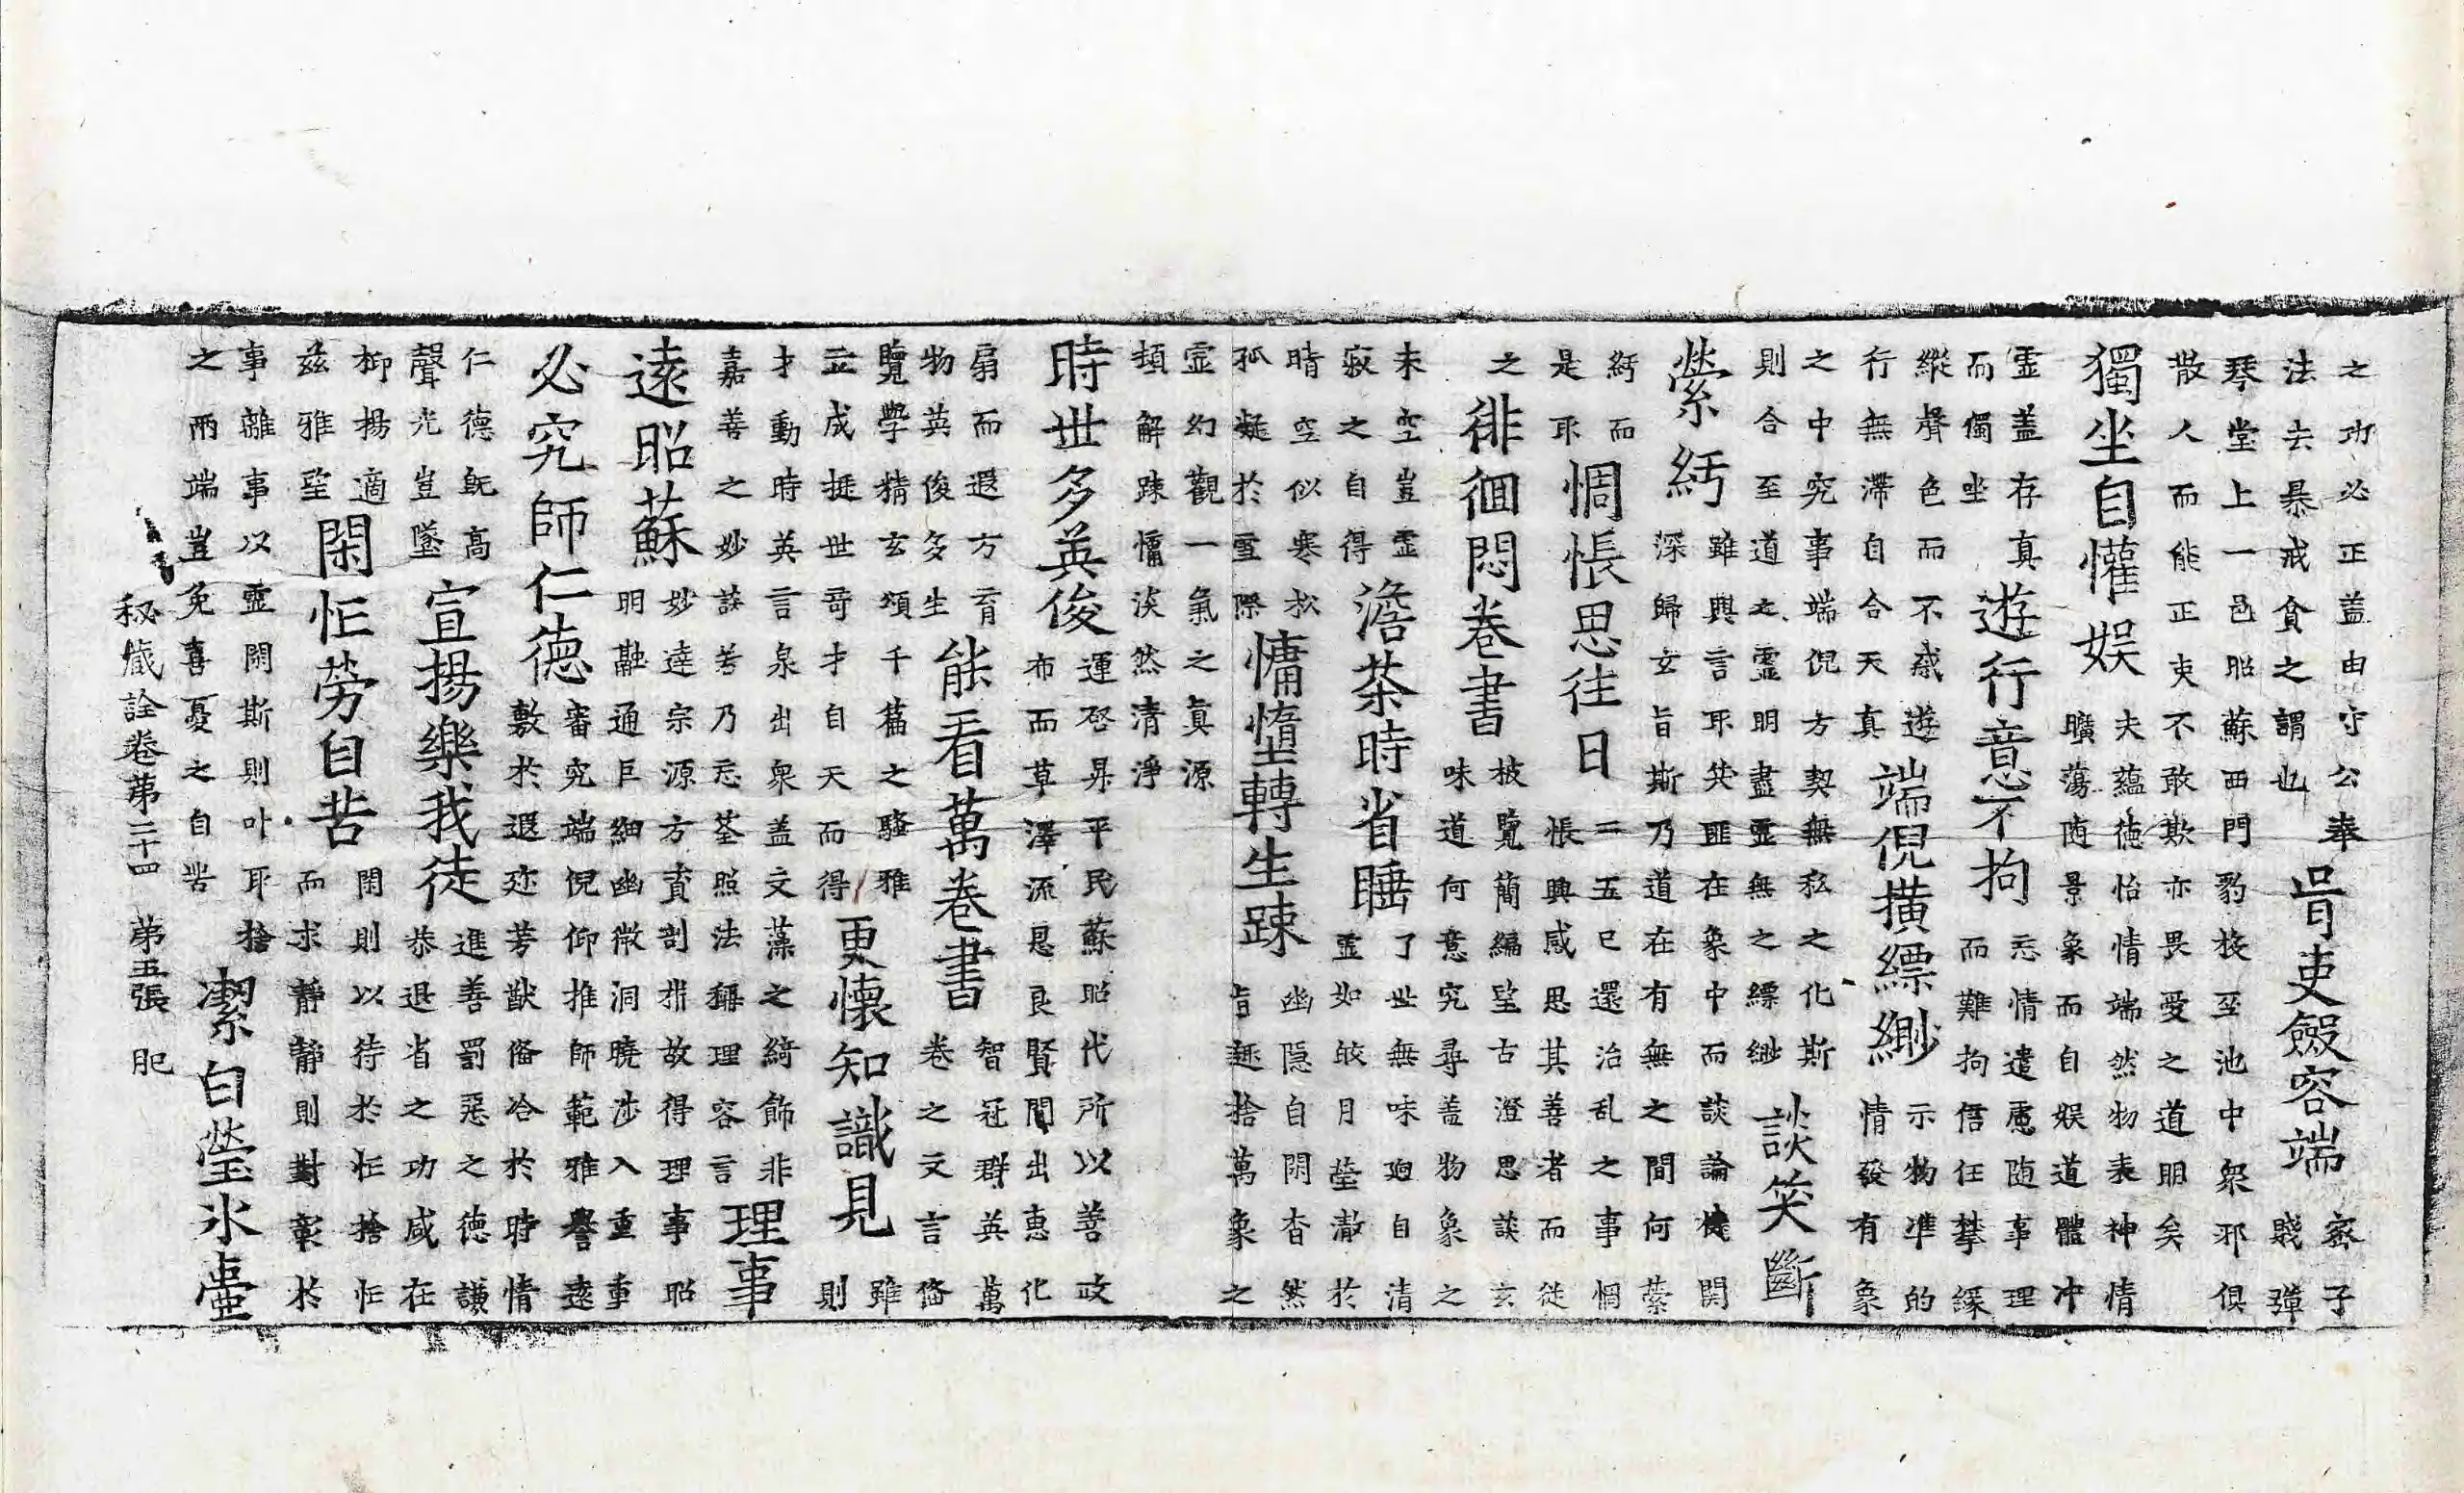 之功必正盖由守公奉
法去暴戒貪之謂也
㫖吏斂容端
密子
賤彈
琴堂上一邑昭蘇西門豹投至池中衆邪俱
散人而能正吏不敢欺亦畏愛之道明矣
獨坐自懽娱
夫蘊德怡情端然物表神情
曠蕩随景象而自娱道體冲
霊盖存真
而獨坐
遊行意不拘
忘情遣慮随事理
而難拘信任攀緣
縱聲色而不惑遊
行無滯自合天真
端倪横縹緲
示物准的
情發有象
之中究事端倪方契無私之化斯
則合至道之霊明盡霊無之縹緲
談笑斷
縈紆
雖與言耳共匪在象中而談論関
深歸玄旨斯乃道在有無之間何縈
紆而
是耳
惆悵思往日
二五已還治乱之事惆
悵興感思其善者而從
之
徘徊悶卷書
披覽簡編望古澄思談玄
味道何意究尋盖物象之
未空豈霊
寂之自得
澹茶時省睡
了世無味廻自清
霊如皎月瑩澈於
晴空似寒松
孤凝於雪際
慵惰轉生踈
幽隱自閑杳然
旨趣捨萬象之
霊幻觀一氣之眞源
頓解踈慵淡然清淨
時世多英俊
運啓昇平民蘇昭代所以善政
布而草澤流恩良賢間出惠化
扇而遐方育
物英俊多生
能看萬卷書
智冠群英萬
卷之文言俻
覽學精玄頌千篇之騷雅
立成挺世奇才自天而得
更懷知識見
雖
則
才動時英言泉出泉盖文藻之綺飾非
嘉善之妙談若乃忘荃照法稱理容言
理事
遠昭蘇
妙達宗源方賁剖故得理事昭
明融通巨細幽微洞曉涉入重重
必究師仁德
審究端倪仰推師範雅譽遠
敷於遐迩芳猷俻洽於時情
仁德既高
聲光豈墜
宣揚樂我徒
進善罰惡之德謙
恭退省之功咸在
抑揚適
茲雅望
閑忙勞自苦
閑則以待於忙捨忙
而求靜靜則對彰於
事離事以霊閑斯則叶耳捨
之兩端豈免喜憂之自苦
潔白瑩氷壷
秘藏詮卷苐二十四 苐五張 肥